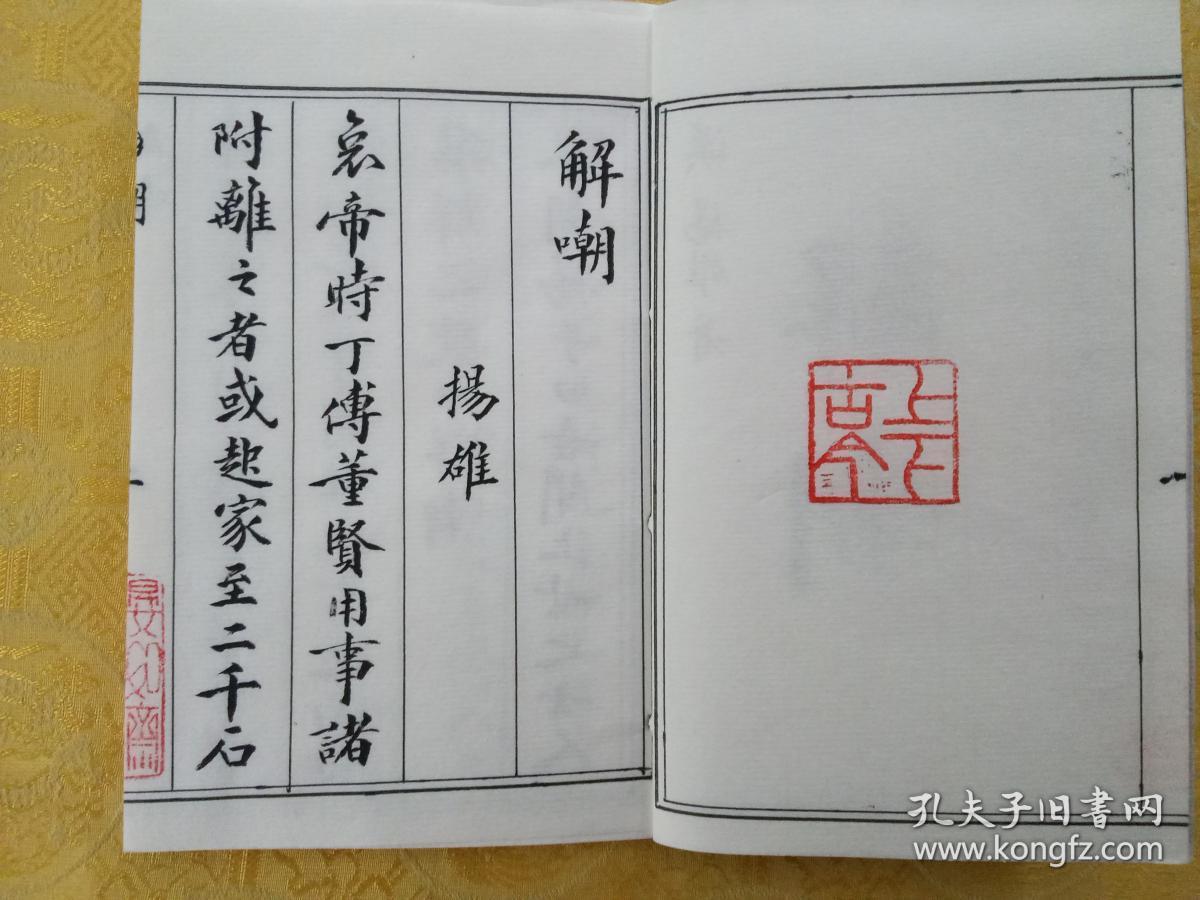 解嘲
揚雄
哀帝時丁傅董賢用事諸
附離之者或起家至二千石
上下
古今
孔夫子旧書网
www.kongfz.com